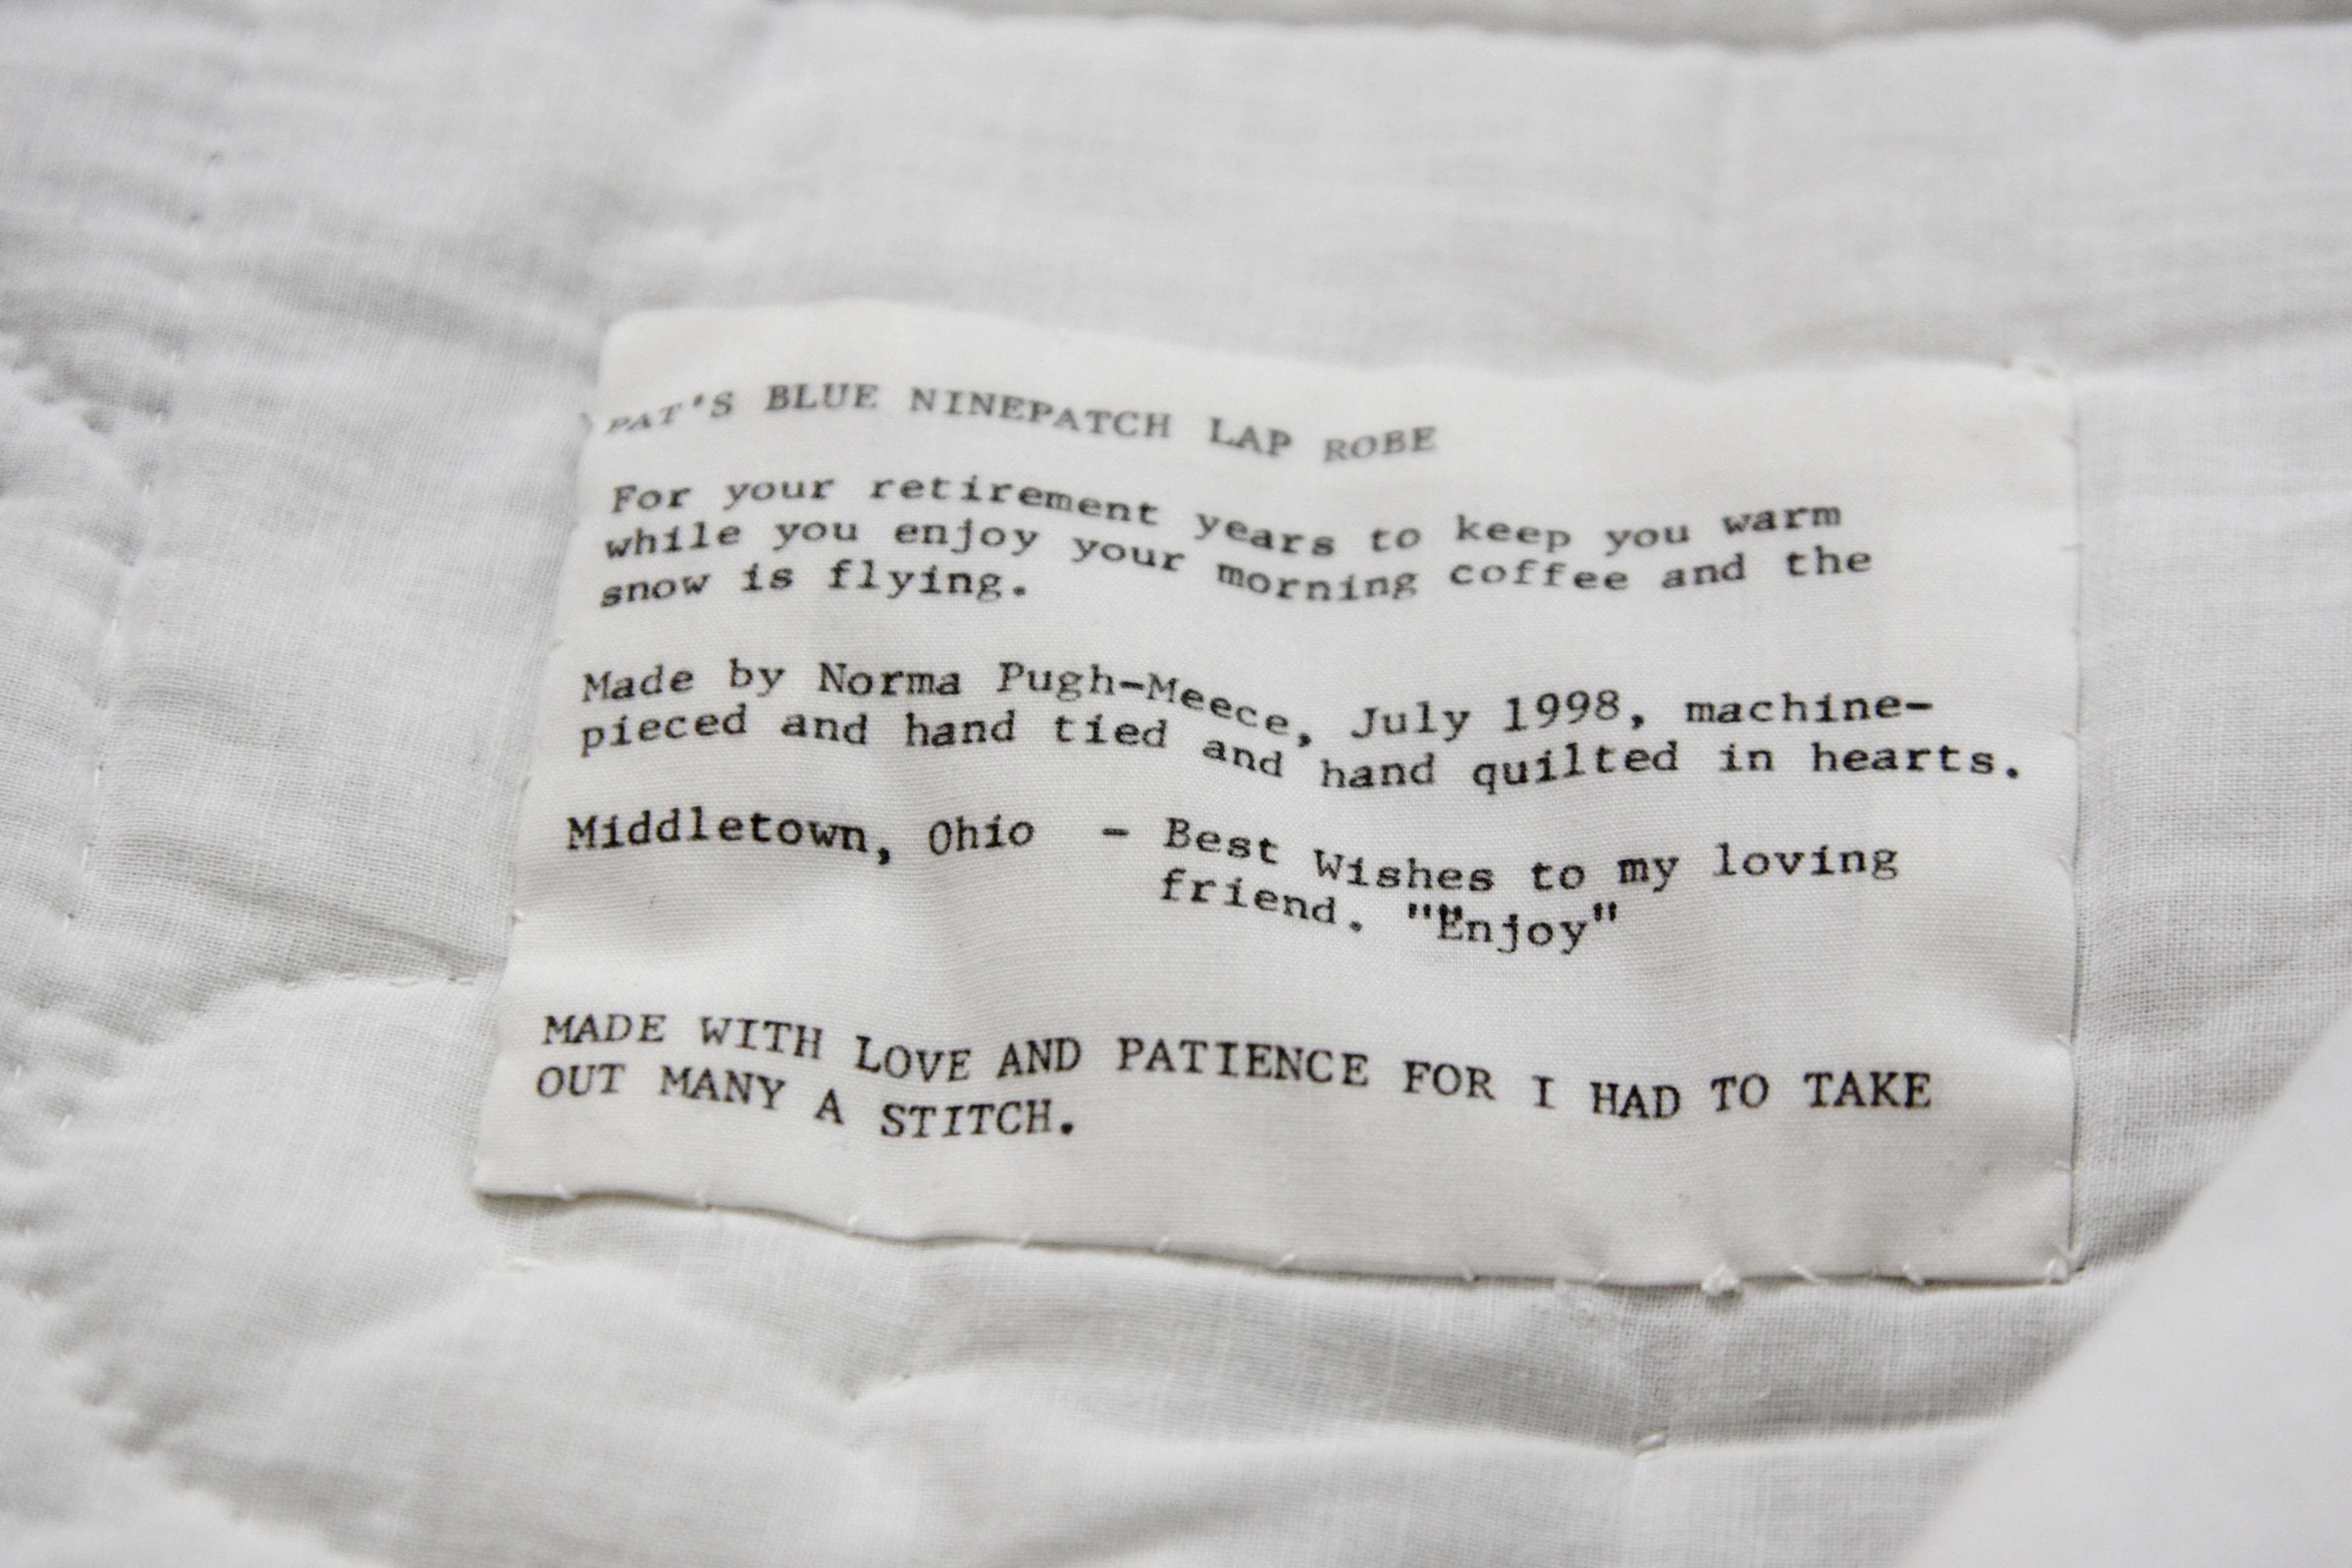 PAT'S BLUE NINEPATCH LAP ROBE
For your retirement years to keep you warm
while you enjoy your morning coffee and the
snow is flying.
Made by Norma Pugh-Meece, July 1998, machine-
pieced and hand tied and hand quilted in hearts.
Middletown, Ohio - Best Wishes to my loving
friend. ""Enjoy"
MADE WITH LOVE AND PATIENCE FOR I HAD TO TAKE
OUT MANY A STITCH.